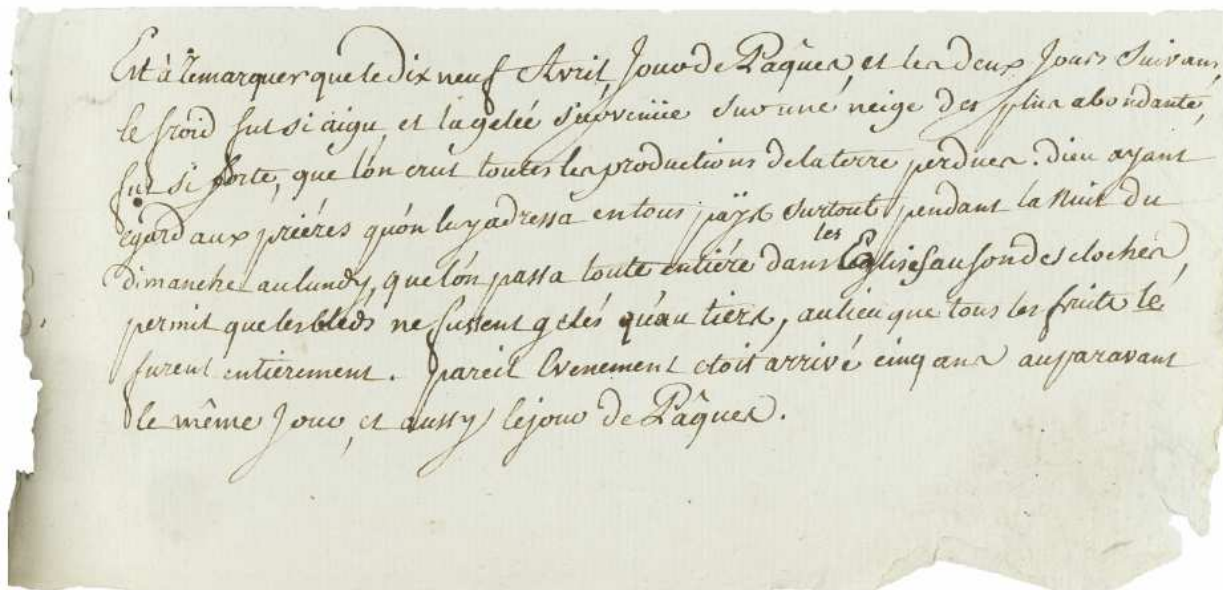 Est à Remarquer que le dix neuf Avril, Jour de Pâques, et les deux Jours Suivans,
le froid fut si aigu, et la gelée survenüe sur une neige des plus abondante,
fut si forte, que l'on crut toutes les productions de la terre perdues. dieu ayant
égard aux priéres qu'on luy adressa en tous païs surtout pendant la Nuit du
dimanche au lundy, que l'on passa toute entiére dans les Eglises au son des cloches,
permit que les bleds ne fussent gelés qu'au tiers, au lieu que tous les fruits le
furent entiérement. pareil Evenement etoit arrivé cinq ans auparavant
le même Jour, et aussy le jour de Pâques.